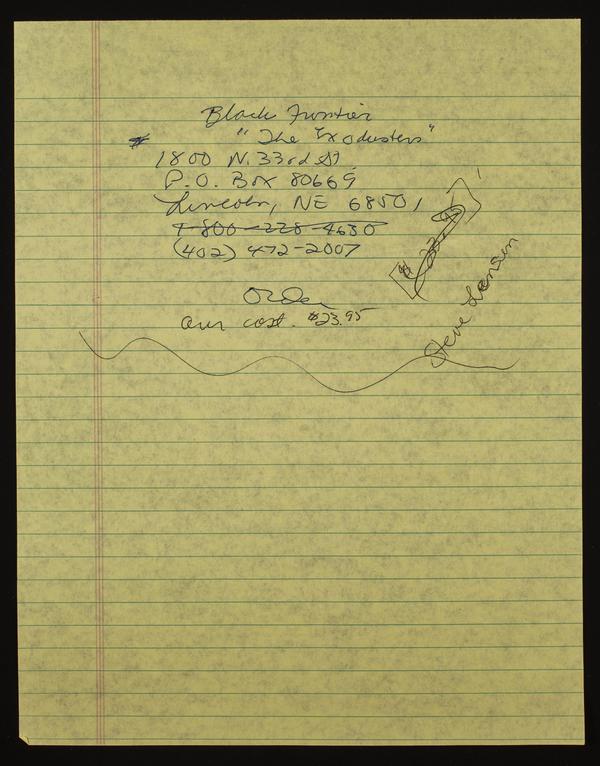 Black Frontier
"The Exodusters"
1800 N. 33rd St.
P.O. Box 80669
Lincoln, NE 68501
1-800-228-4630
(402) 472-2007
Order
Our cost. $23.95
Steve Lensen